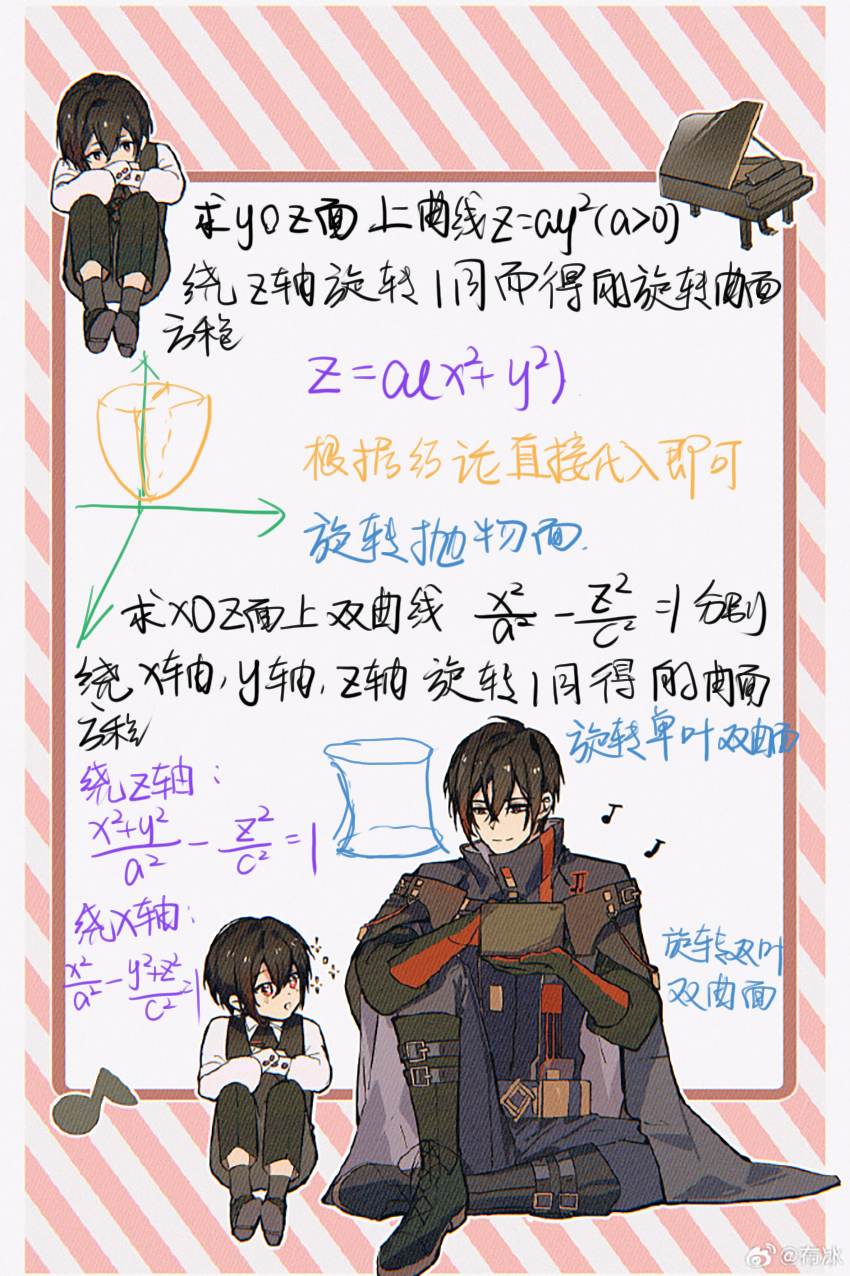 求yOz面上曲线z=ay²(a>0)
绕z轴旋转1周而得的旋转曲面
方程
z=a(x²+y²)
根据结论直接代入即可
旋转抛物面.
求xOz面上双曲线 x²/a² - z²/c² =1 分别
绕x轴,y轴,z轴旋转1周得的曲面
方程
旋转单叶双曲面
绕z轴:
(x²+y²)/a² - z²/c² =1
绕x轴:
x²/a² - (y²+z²)/c² =1
旋转双叶
双曲面
@布冰